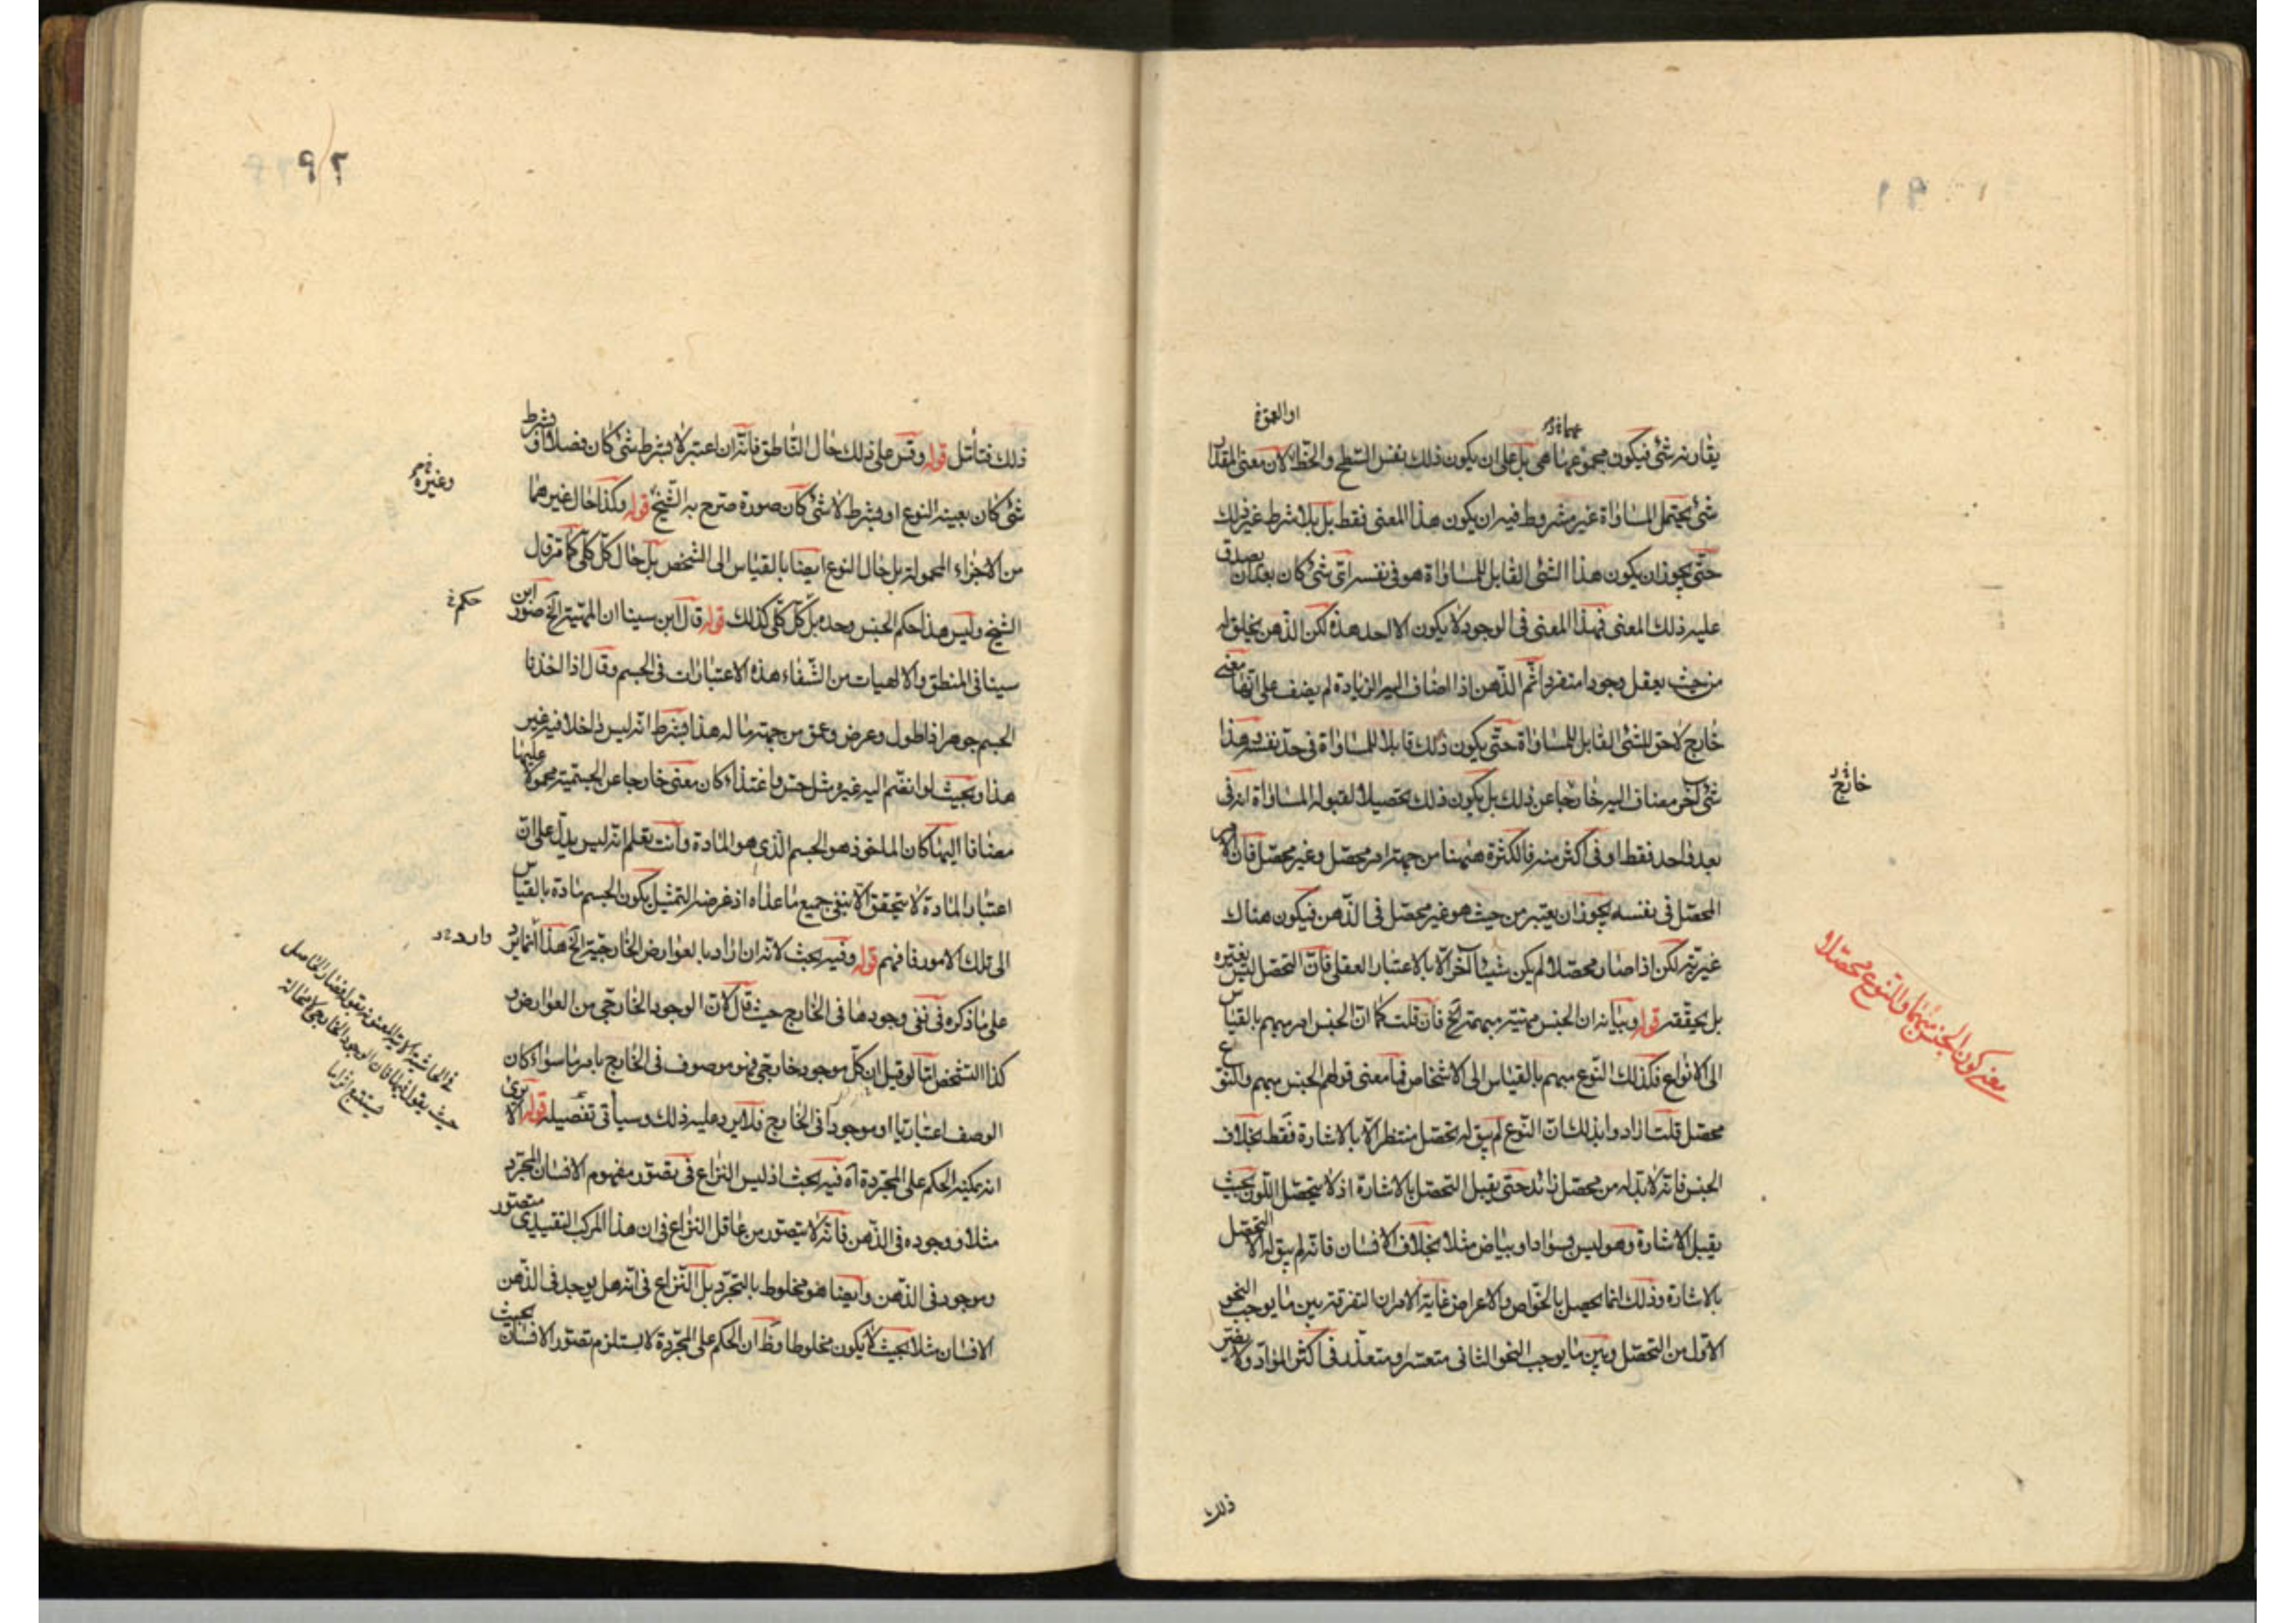 ٩١
او العمق
يقارنه شئ فيكون مجموعهما هى بل على ان يكون ذلك نفس السطح والخط لان معنى المقدار
شئ يحتمل المساواة غير مشروط فيه ان يكون هذا المعنى فقط بل بلا شرط غير ذلك
حتى يجوز ان يكون هذا الشئ القابل للمساواة هو فى نفسه اى شئ كان بعد ان يصدق
عليه ذلك المعنى فهذا المعنى فى الوجود لا يكون الا احد هذه لكن الذهن يخلق له
من حيث يعقل وجودا منفردا ثم الذهن اذا اضاف اليه الزيادة لم يضف على انها معنى
خارج لاحق للشئ القابل للمساواة حتى يكون ذلك قابلا للمساواة فى حد نفسه وهذا
شئ آخر مضاف اليه خارجا عن ذلك بل يكون ذلك تحصيلا لقبوله المساواة انه فى
خارج
بعد واحد فقط او فى اكثر منه فالكثرة ههنا من جهة امر محصل وغير محصل فان الامر
المحصل فى نفسه يجوز ان يعتبر من حيث هو غير محصل فى الذهن فيكون هناك
غيرية لكن اذا صار محصلا لم يكن شيئا آخر الا بالاعتبار العقلى فان التحصل ليس يغيره
بل يحققه قوله وبيانه ان الجنس مهية مبهمة الخ فان قلت كما ان الجنس امر مبهم بالقياس
معنى كون الجنس مبهما والنوع محصلا
الى الانواع فكذلك النوع مبهم بالقياس الى الاشخاص فما معنى قولهم الجنس مبهم والنوع
محصل قلت ارادوا بذلك ان النوع لم يبق له تحصل منتظر الا بالاشارة فقط بخلاف
الجنس فانه لا بد له من محصل زائد حتى يقبل التحصل بالاشارة اذ لا يتحصل اللون بحيث
يقبل الاشارة وهو ليس بسواد او بياض مثلا بخلاف الانسان فانه لم يبق له الا التحصل
بالاشارة وذلك انما يحصل بالخواص والاعراض غاية الامر ان التفرقة بين ما يوجب النحو
الاول من التحصل وبين ما يوجب النحو الثانى متعسر او متعذر فى اكثر المواد ولا يضر
ذلك
٩٢
ذلك فتأمل قوله وقس على ذلك حال الناطق فانه ان اعتبر لا بشرط شئ كان فصلا او بشرط
شئ كان بعينه النوع او بشرط لا شئ كان صورة صرح به الشيخ قوله وكذا حال غيرهما
وغيره
من الاجزاء المحمولة بل حال النوع ايضا بالقياس الى الشخص بل حال كل كلى كما مر قول
الشيخ وليس هذا حكم الجنس وحده بل كل كلى كذلك قوله قال ابن سينا ان المهية الخ صور ابن
حكم
سينا فى المنطق والالهيات من الشفاء هذه الاعتبارات فى الجسم وقال اذا اخذنا
الجسم جوهرا ذا طول وعرض وعمق من جهة ما له هذا بشرط انه ليس داخلا فيه غير
هذا وبحيث لو انضم اليه غيره مثل حس واغتذاء كان معنى خارجا عن الجسمية محمولا عليها
مضافا اليها كان الماخوذ هو الجسم الذى هو المادة وانت تعلم انه ليس يدل على ان
اعتبار المادة لا يتحقق الا بنفى جميع ما عداه اذ غرضه التمثيل بكون الجسم مادة بالقياس
الى تلك الامور فافهم قوله وفيه بحث لانه ان اراد بالعوارض الخارجية الخ هذا انما يرد
وارد
على ما ذكره فى نفى وجودها فى الخارج حيث قال لان الوجود الخارجى من العوارض و
كذا التشخص اما لو قيل ان كل موجود خارجى فهو موصوف فى الخارج بامر ما سواء كان
الوصف اعتباريا او موجودا فى الخارج فلا يرد عليه ذلك وسيأتى تفصيله قوله الا يرى
انه يمكنه الحكم على المجردة آه فيه بحث اذ ليس النزاع فى تصور مفهوم الانسان المجرد
مثلا ووجوده فى الذهن فانه لا يتصور من عاقل النزاع فى ان هذا المركب التقييدى متصور
وموجود فى الذهن وايضا هو مخلوط بالتجرد بل النزاع فى انه هل يوجد فى الذهن
الانسان مثلا بحيث لا يكون مخلوطا وظ ان الحكم على المجردة لا يستلزم تصور الانسان بحيث